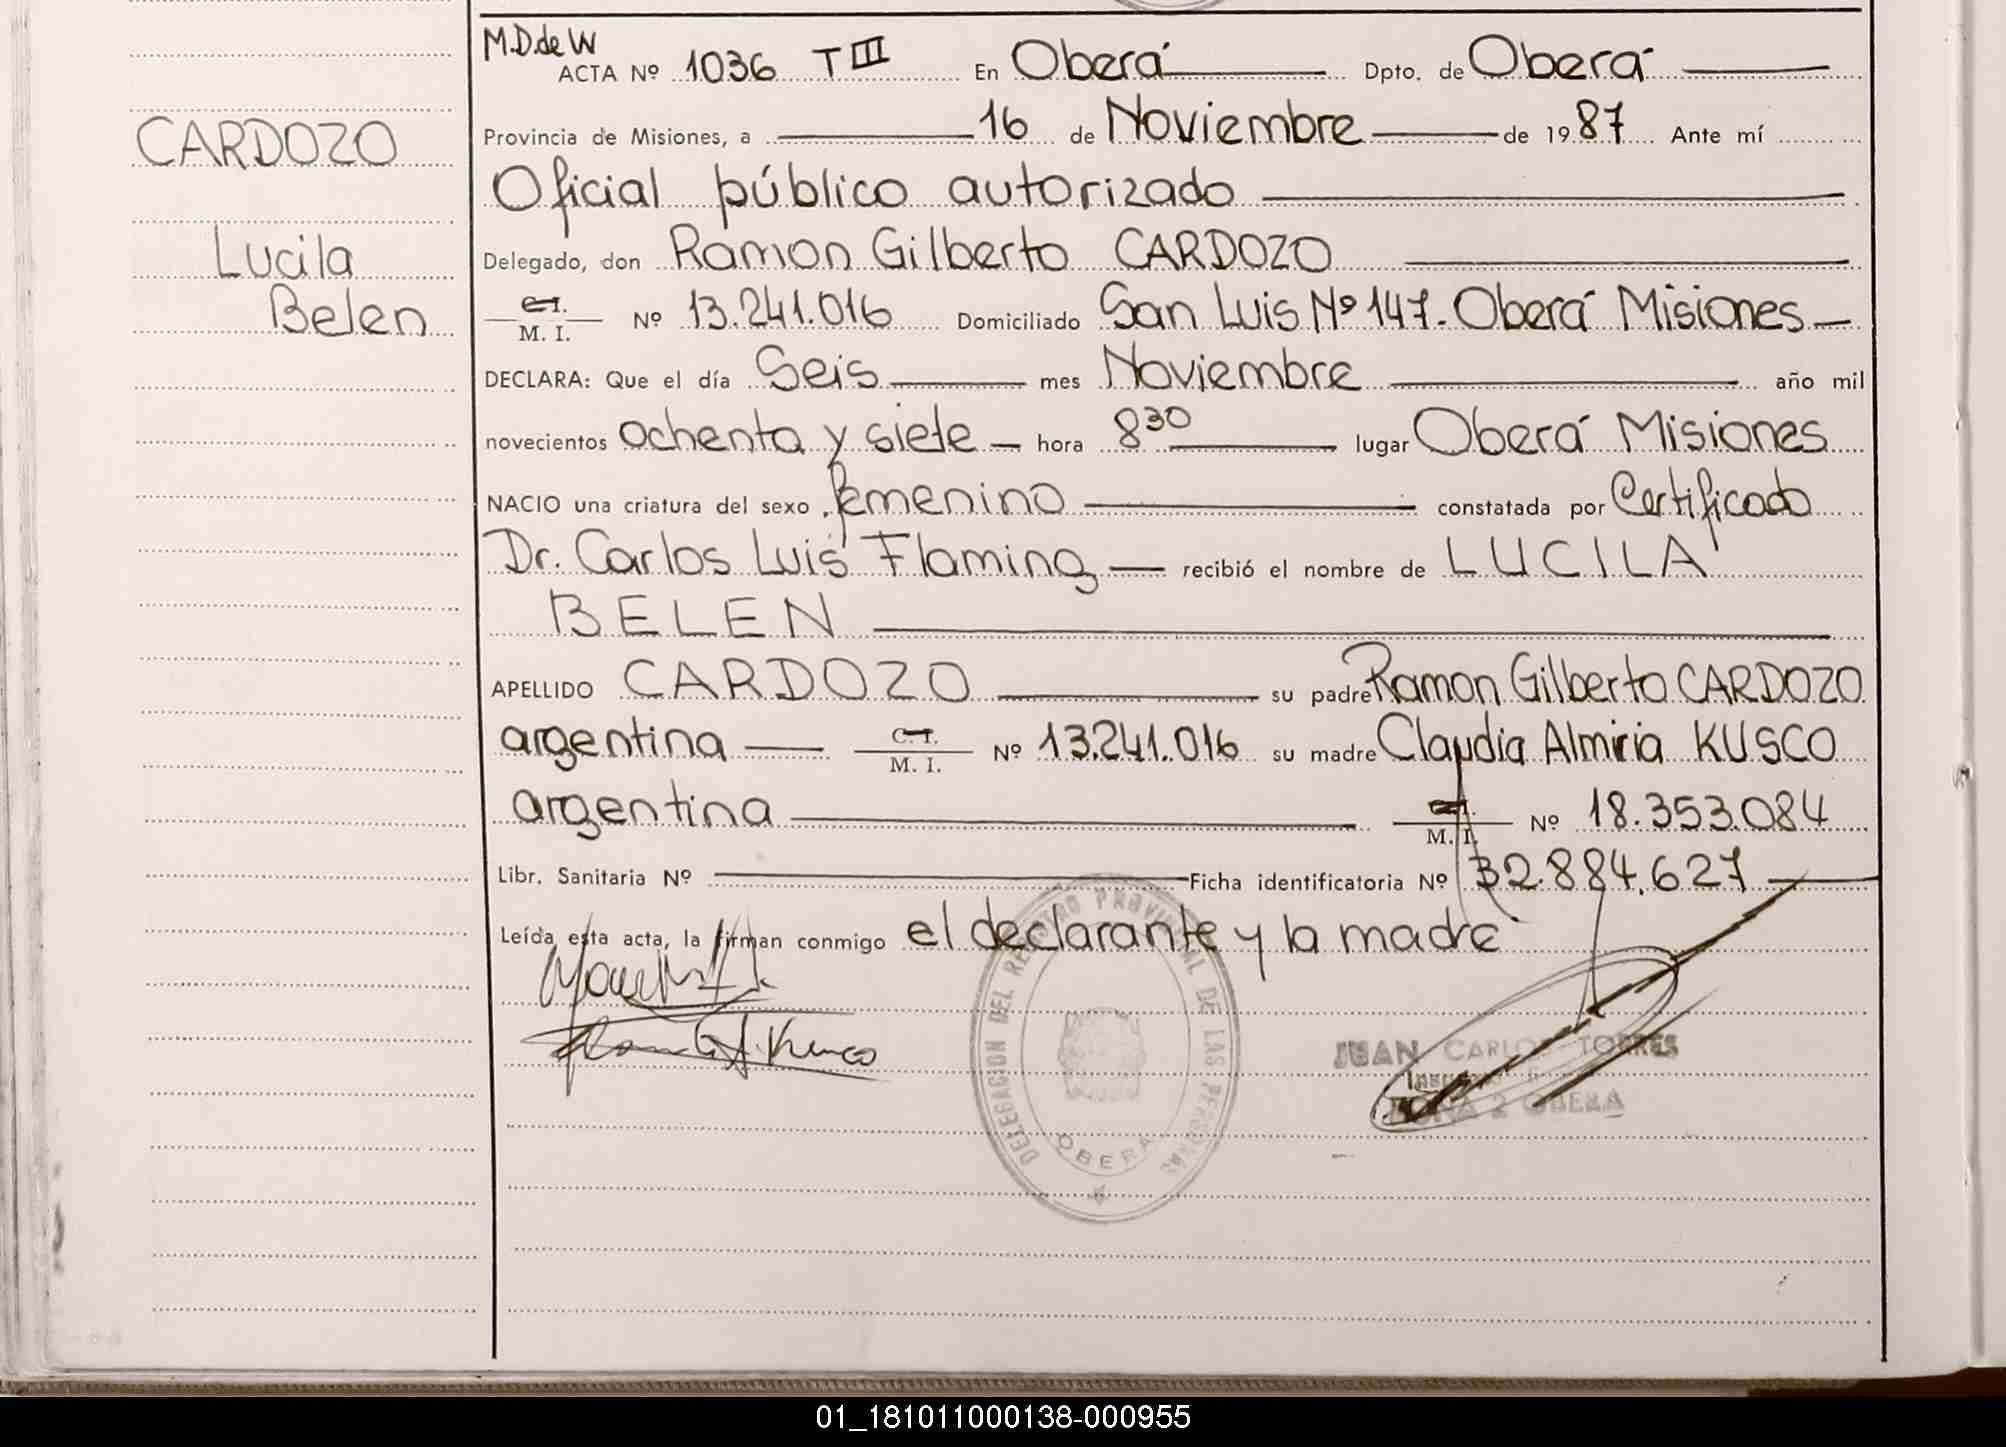 M.D.de W
ACTA Nº 1036 T III En Oberá Dpto. de Oberá
Provincia de Misiones, a 16 de Noviembre de 1987 Ante mí
CARDOZO
Oficial público autorizado
Lucila
Delegado, don Ramon Gilberto CARDOZO
Belen
C.I.
M. I. Nº 13.241.016 Domiciliado San Luis Nº 147. Oberá Misiones
DECLARA: Que el día Seis mes Noviembre año mil
novecientos ochenta y siete hora 8 30 lugar Oberá Misiones
NACIO una criatura del sexo femenino constatada por Certificado
Dr. Carlos Luis Flaming recibió el nombre de LUCILA
BELEN
APELLIDO CARDOZO su padre Ramon Gilberto CARDOZO
argentina C.I. M. I. Nº 13.241.016 su madre Claudia Almiria KUSCO
argentina C.I. M. I. Nº 18.353.084
Libr. Sanitaria Nº Ficha identificatoria Nº 32.884.627
Leída esta acta, la firman conmigo el declarante y la madre
DELEGACION DEL REGISTRO PROVINCIAL DE LAS PERSONAS
OBERA
JUAN CARLOS TORRES
ZONA 2 OBERA
01_181011000138-000955